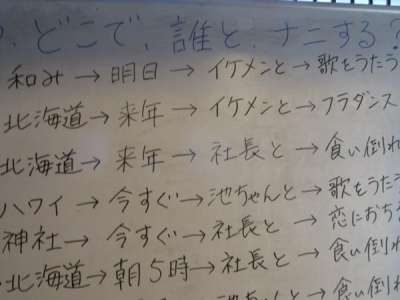 ?どこで、誰と、ナニする?
和み→明日→イケメンと→歌をうたう
北海道→来年→イケメンと→フラダンス
北海道→来年→社長と→食い倒れ
ハワイ→今すぐ→池ちゃんと→歌をうたう
神社→今すぐ→社長と→恋におち
北海道→朝5時→社長と→食い倒れ
池ちゃんと→食い倒れ